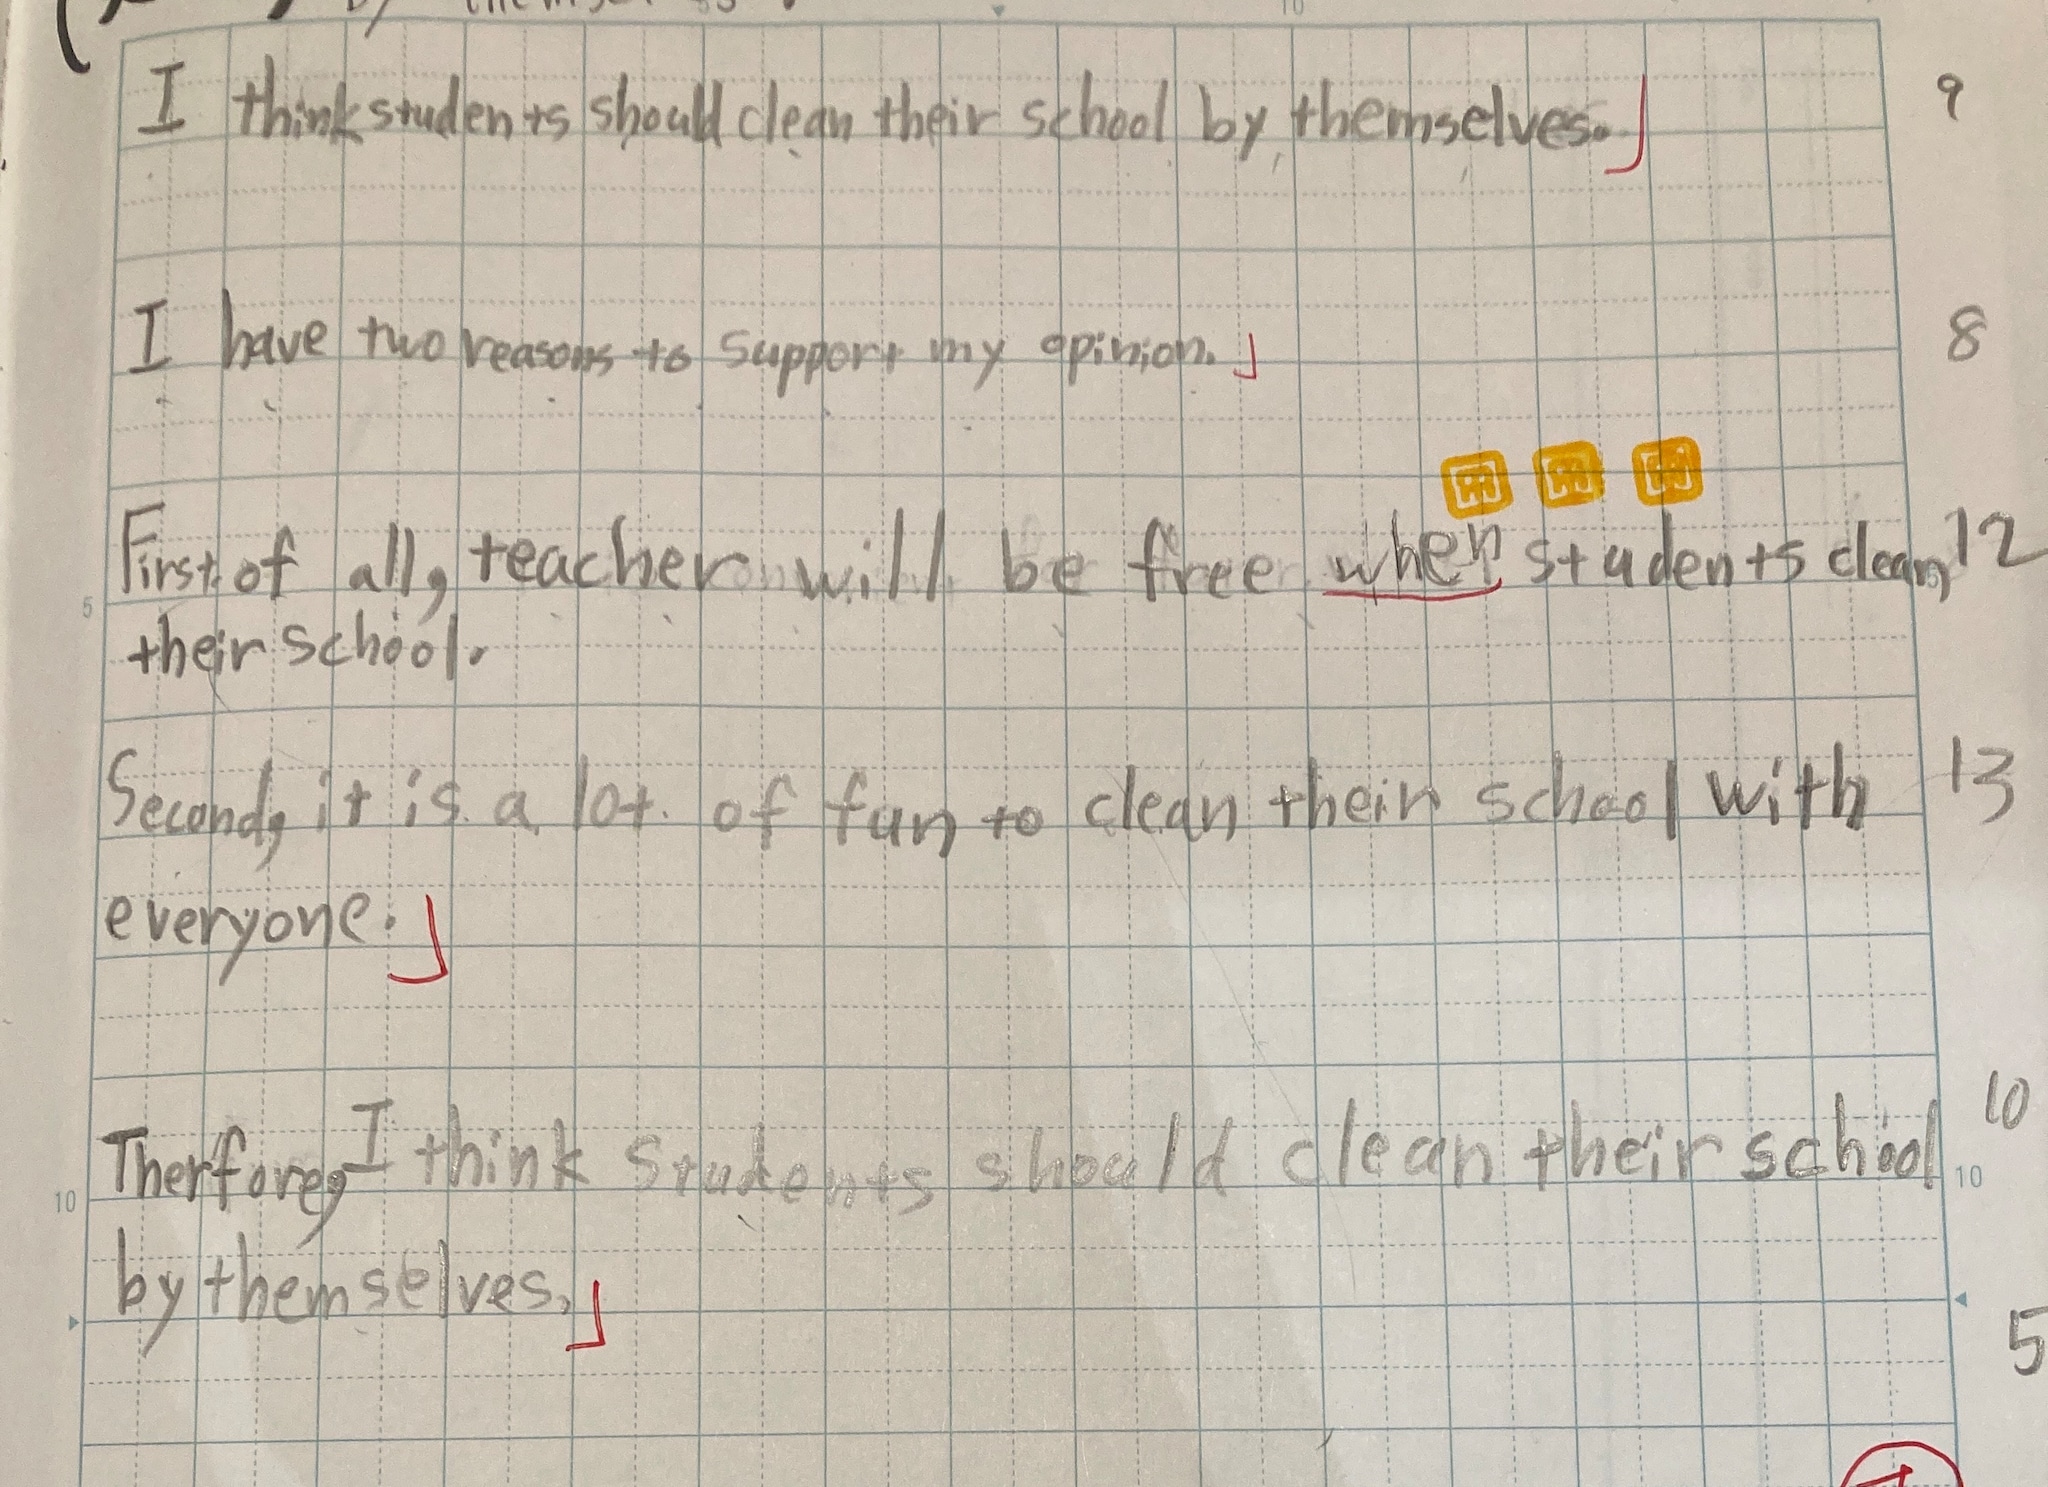 by themselves.
I think students should clean their school by themselves. 9
I have two reasons to support my opinion. 8
First of all, teacher will be free when students clean 12
5
their school.
Second, it is a lot of fun to clean their school with 13
everyone.
Therfore, I think students should clean their school 10
10 10
by themselves. 5